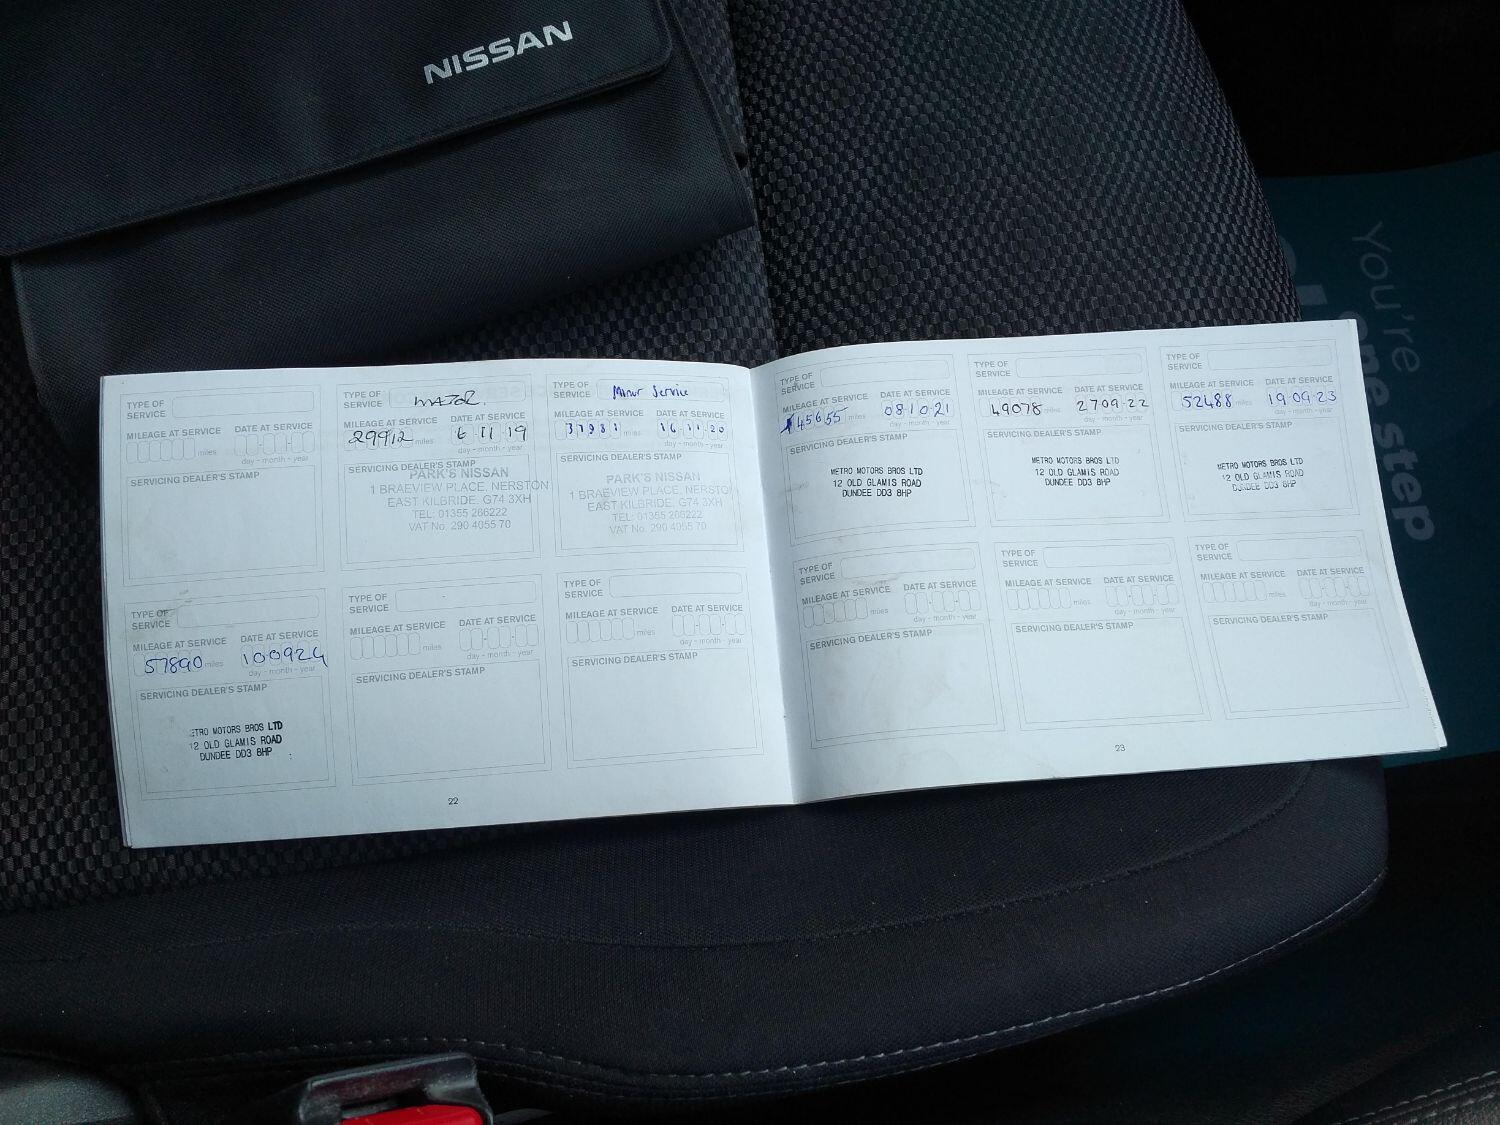 NISSAN
You're
one step
TYPE OF
SERVICE
MILEAGE AT SERVICE DATE AT SERVICE
miles
day - month - year
SERVICING DEALER'S STAMP
TYPE OF
SERVICE MAJOR.
MILEAGE AT SERVICE DATE AT SERVICE
29912 miles 6 11 19
day - month - year
SERVICING DEALER'S STAMP
PARK'S NISSAN
1 BRAEVIEW PLACE, NERSTON
EAST KILBRIDE, G74 3XH
TEL: 01355 266222
VAT No. 290 4055 70
TYPE OF
SERVICE Minor Service
MILEAGE AT SERVICE DATE AT SERVICE
37981 miles 16 11 20
day - month - year
SERVICING DEALER'S STAMP
PARK'S NISSAN
1 BRAEVIEW PLACE, NERSTO
EAST KILBRIDE, G74 3XH
TEL: 01355 266222
VAT No. 290 4055 70
TYPE OF
SERVICE
MILEAGE AT SERVICE DATE AT SERVICE
57890 miles 100924
day - month - year
SERVICING DEALER'S STAMP
ETRO MOTORS BROS LTD
12 OLD GLAMIS ROAD
DUNDEE DD3 8HP
TYPE OF
SERVICE
MILEAGE AT SERVICE DATE AT SERVICE
miles
day - month - year
SERVICING DEALER'S STAMP
TYPE OF
SERVICE
MILEAGE AT SERVICE DATE AT SERVICE
miles
day - month - year
SERVICING DEALER'S STAMP
22
TYPE OF
SERVICE
MILEAGE AT SERVICE DATE AT SERVICE
45655 miles 08 10 21
day - month - year
SERVICING DEALER'S STAMP
METRO MOTORS BROS LTD
12 OLD GLAMIS ROAD
DUNDEE DD3 8HP
TYPE OF
SERVICE
MILEAGE AT SERVICE DATE AT SERVICE
49078 miles 2709-22
day - month - year
SERVICING DEALER'S STAMP
METRO MOTORS BROS LTD
12 OLD GLAMIS ROAD
DUNDEE DD3 8HP
TYPE OF
SERVICE
MILEAGE AT SERVICE DATE AT SERVICE
52488 miles 19 09 23
day - month - year
SERVICING DEALER'S STAMP
METRO MOTORS BROS LTD
12 OLD GLAMIS ROAD
DUNDEE DD3 8HP
TYPE OF
SERVICE
MILEAGE AT SERVICE DATE AT SERVICE
miles
day - month - year
SERVICING DEALER'S STAMP
TYPE OF
SERVICE
MILEAGE AT SERVICE DATE AT SERVICE
miles
day - month - year
SERVICING DEALER'S STAMP
TYPE OF
SERVICE
MILEAGE AT SERVICE DATE AT SERVICE
miles
day - month - year
SERVICING DEALER'S STAMP
23